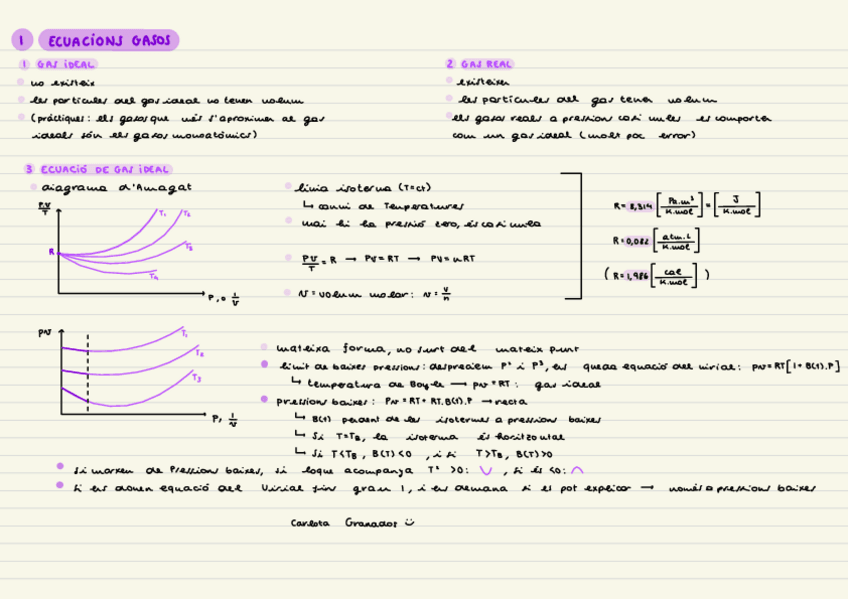 1 ECUACIONS GASOS
1 GAS IDEAL
no existeix
les partícules del gas ideal no tenen volum
(pràctiques: els gasos que més s'aproximen al gas
ideals són els gasos monoatòmics)
2 GAS REAL
existeixen
les partícules del gas tenen volum
els gasos reals a pression casi nul·les es comporten
com un gas ideal (molt poc error)
3 ECUACIÓ DE GAS IDEAL
diagrama d'Amagat
PV/T
R
T₁
T₂
T₃
T₄
P, o 1/V
línia isoterma (T=ct)
↳ canvi de Temperatures
mai hi ha pressió zero, és casi nul·la
PV/T = R → PV=RT → PV=nRT
v = volum molar: v = V/n
R= 8,314 [Pa.m³/K.mol] = [J/K.mol]
R=0,082 [atm.L/K.mol]
(R=1,986 [cal/K.mol])
pv
T₁
T₂
T₃
P, 1/v
mateixa forma, no surt del mateix punt
límit de baixes pressions: despreciem P² i P³, ens queda equació del virial: pv=RT[1+B(t).P]
↳ temperatura de Boyle → pv=RT: gas ideal
pressions baixes: Pv=RT+RT.B(t).P → recta
↳ B(t) pendent de les isotermes a pression baixes
↳ Si T=TB, la isoterma és horitzontal
↳ Si T<TB, B(T)<0, i si T>TB, B(T)>0
Si marxem de Pressions baixes, si loque acompanya T² >0: ∪, si és <0: ∩
Si ens donen equació del Virial fins grau 1, i ens demana si es pot explicar → només a pressions baixes
Carlota Granados